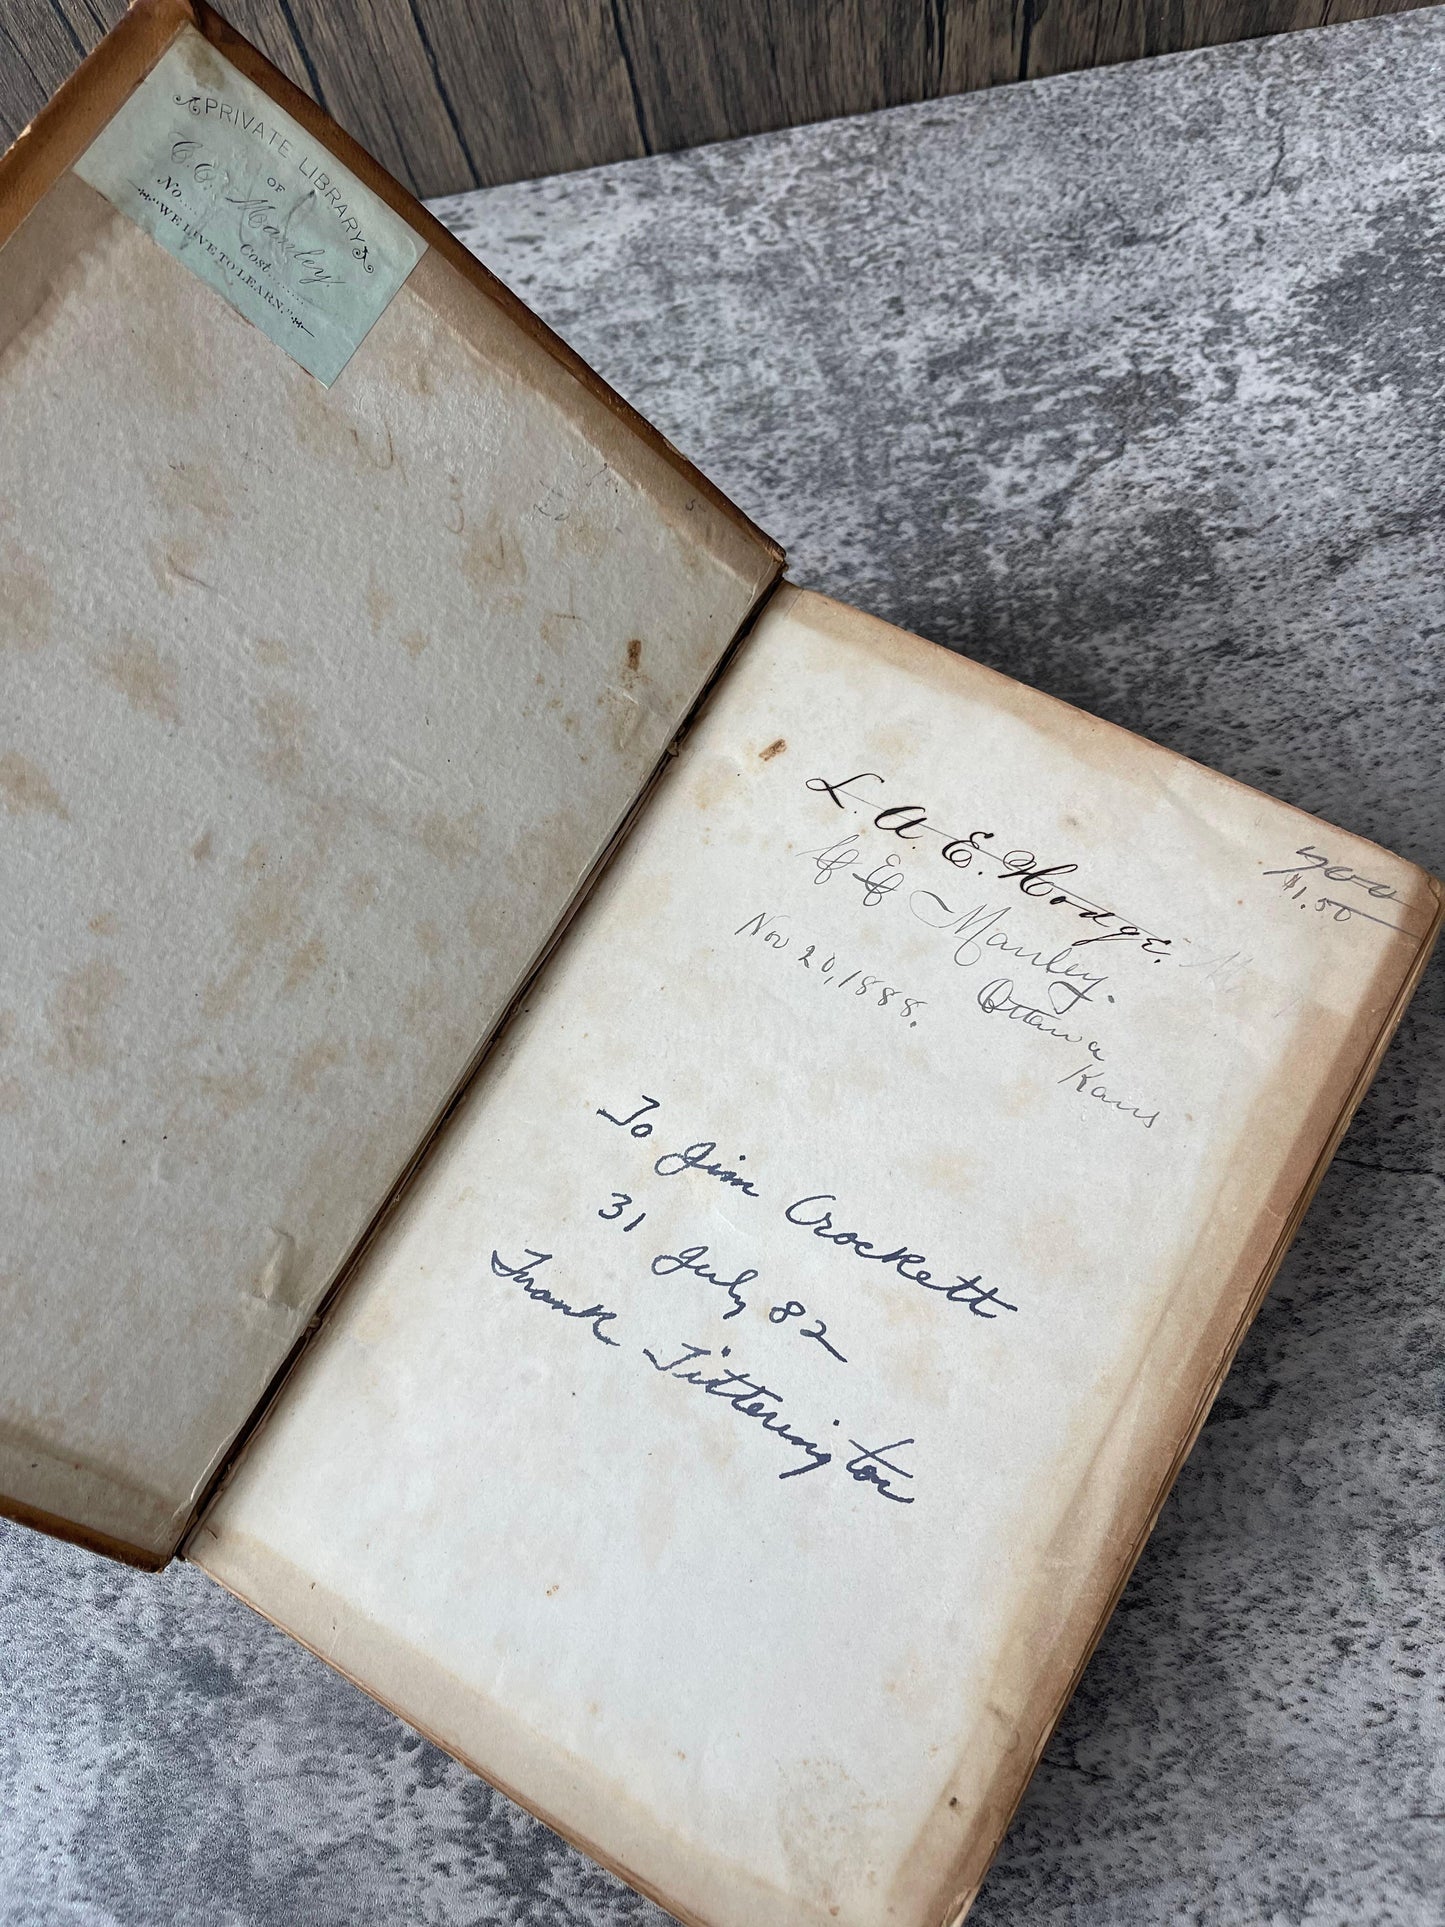 PRIVATE LIBRARY
OF
C. C. Manley.
No........ Cost........
"WE LIVE TO LEARN."
L. A. E. Hodge.
Manley.
Nov 20, 1888. Ottawa
Kans
$1.50
To Jim Crockett
31 July 82
Frank Titterington